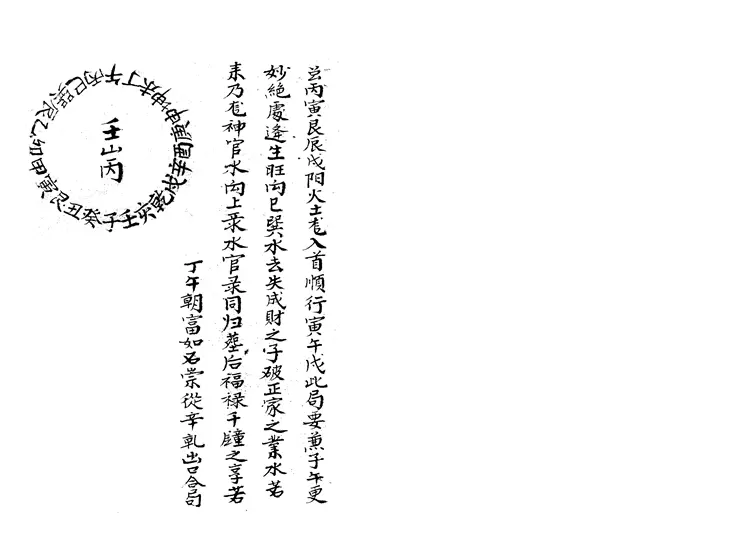 丙寅艮辰戌門火土龙入首順行寅午戌此局要兼子午更
妙絶處逢生旺向巳巽水去失成財之子破正家之業水若
来乃龙神官水向上录水官录同归墓后福禄千鍾之享若
丁午朝富如石崇從辛乹出口合局
壬山丙
子壬亥乾戌辛酉申坤未丁午丙巳巽辰乙卯甲寅艮丑癸